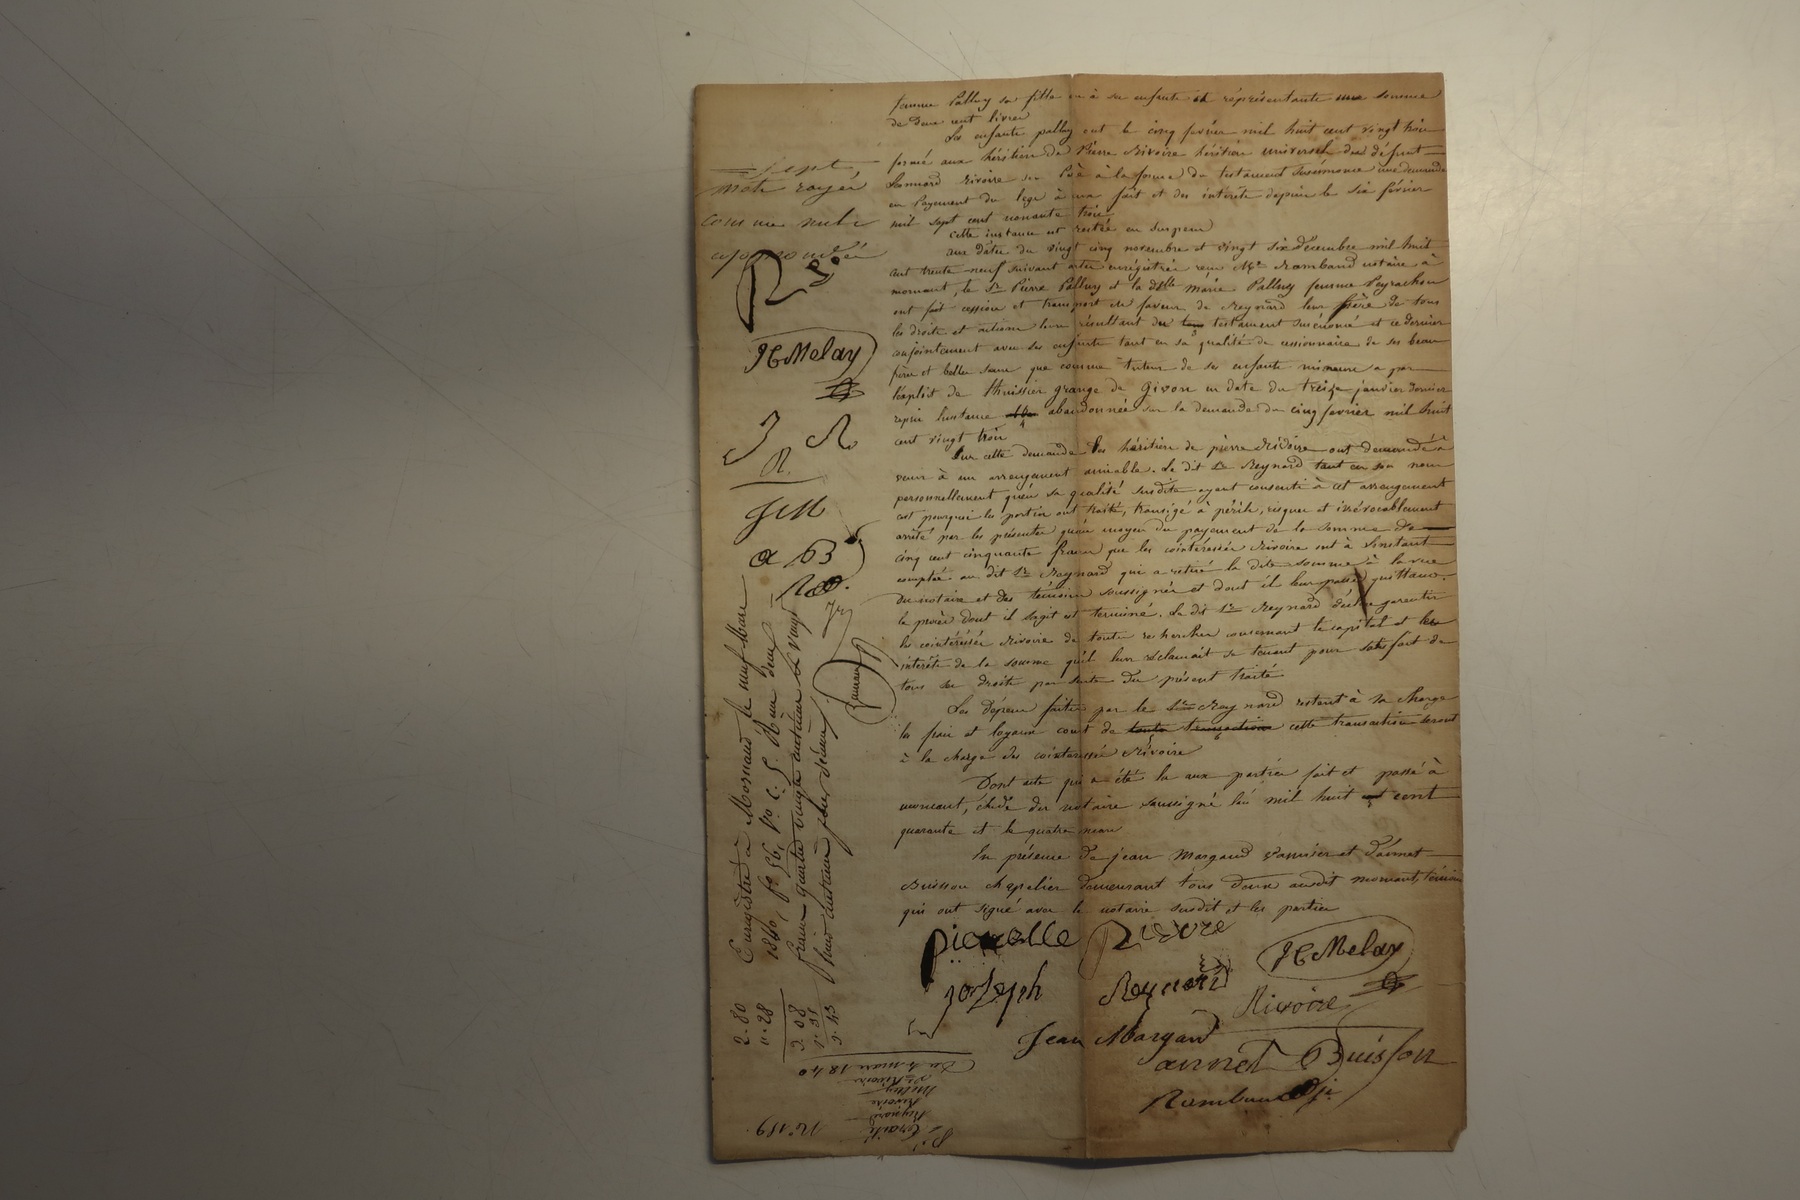 femme Palluy sa fille ou à ses enfants et représentants une somme
de deux cent livres
Les enfants palluy ont le cinq février mil huit cent vingt trois
formé aux héritiers de Pierre Rivoire héritier universel du défunt
Rivoire son Père à la forme du testament susénoncé une demande
en payement du legs à eux fait et des intérêts depuis le six février
mil sept cent nonante trois
cette instance est restée en suspens
aux dates du vingt cinq novembre et vingt six décembre mil huit
cent trente neuf suivant actes enregistrés reçu Me Rambaud notaire à
mornant, le Sr Pierre Palluy et la dlle marie Palluy femme Peyrachon
ont fait cession et transport en faveur de Reynard leur frère de tous
les droits et actions leurs résultant du testament susénoncé et ce dernier
conjointement avec ses enfants tant en sa qualité de cessionnaire de ses beau
frère et belle sœur que comme tuteur de ses enfants mineurs a par
exploit de l'huissier grange de Givors en date du treize janvier dernier
repris l'instance abandonnée sur la demande du cinq février mil huit
cent vingt trois
Sur cette demande les héritiers de pierre Rivoire ont demandé à
venir à un arrangement amiable. Le dit Sr Reynard tant en son nom
personnellement qu'en sa qualité susdite ayant consenti à cet arrangement
c'est pourquoi les parties ont traité, transigé à périls, risques et irrévocablement
arrêté par les présentes qu'au moyen du payement de la somme de
cinq cent cinquante francs que les cointéressés Rivoire ont à l'instant
compté au dit Sr Reynard qui a retiré la dite somme à la vue
du notaire et des témoins soussignés et dont il leur passe quittance.
le procès dont il s'agit est terminé. Le dit Sr Reynard garantir
les cointéressés Rivoire de toutes recherches concernant le capital et les
intérêts de la somme qu'il leur réclamait se tenant pour satisfait de
tous ses droits par suite du présent traité
Les dépens faits par le Sr Reynard restent à sa charge
les frais et loyaux cout de toute transaction cette transaction seront
à la charge des cointéressés Rivoire
Dont acte qui a été lu aux parties fait et passé à
mornant, étude du notaire soussigné l'an mil huit cent
quarante et le quatre mars
En présence de jean Margaud et d'annet
Buisson chapelier demeurant tous deux audit mornant, témoins
qui ont signé avec le notaire susdit et les parties
Rivoire
JC Melay
joseph Reynard
Rivoire
Jean Margaud
annet Buisson
Rambaud
sept
mots rayés
comme nuls
approuvés
JC Melay
J R
R.
JM
a B
Enregistré à Mornant le neuf Mars
1840, fo 56, Vo C. 5. Reçu deux
francs quatre vingts centimes et vingt
huit centimes pour décime.
2.80
0.28
3.08
Du 4 mars 1840
Traité
Reynard
Rivoire
Melay
No 189